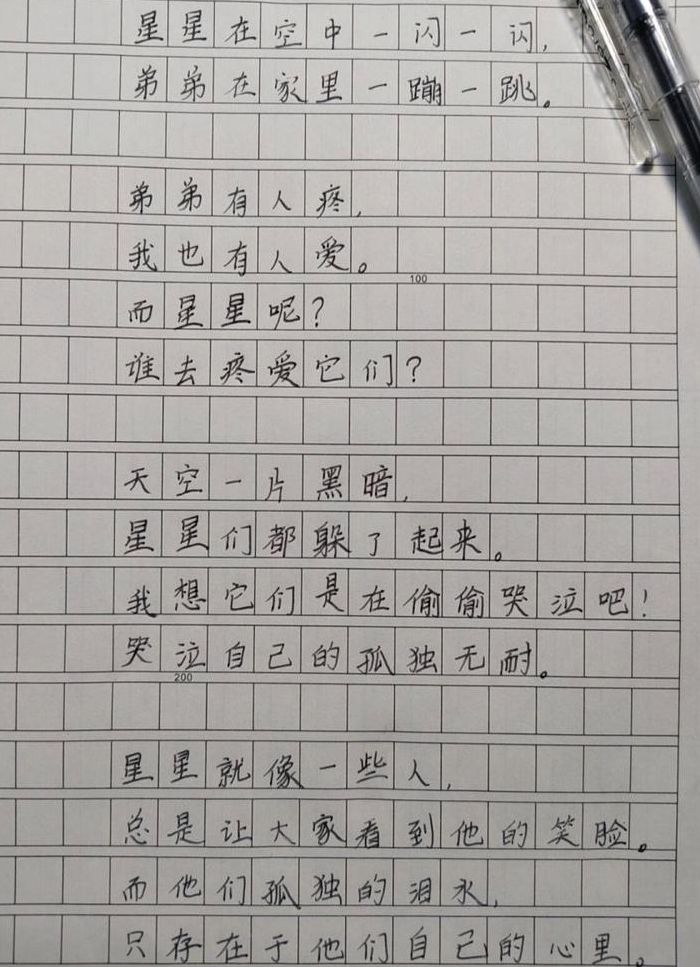 星星在空中一闪一闪,
弟弟在家里一蹦一跳。
弟弟有人疼,
我也有人爱。
100
而星星呢?
谁去疼爱它们?
天空一片黑暗,
星星们都躲了起来。
我想它们是在偷偷哭泣吧!
哭泣自己的孤独无耐。
200
星星就像一些人,
总是让大家看到他的笑脸。
而他们孤独的泪水,
只存在于他们自己的心里。